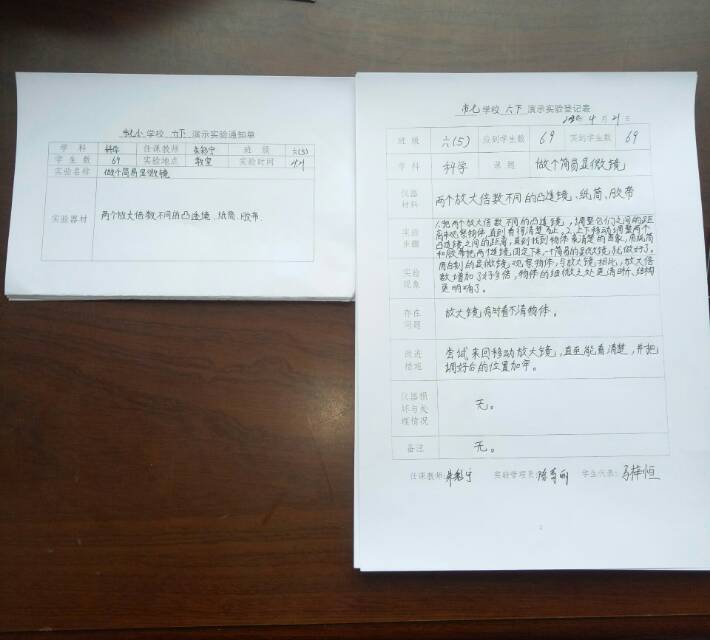 学校 六下 演示实验通知单
学科 科学 任课教师 班级 六(5)
学生数 69 实验地点 教室 实验时间
实验名称 做个简易显微镜
实验器材 两个放大倍数不同的凸透镜、纸筒、胶带
学校 六下 演示实验登记表
4月21日
班级 六(5) 应到学生数 69 实到学生数 69
学科 科学 课题 做个简易显微镜
仪器材料 两个放大倍数不同的凸透镜、纸筒、胶带
实验步骤 1、把两个放大倍数不同的凸透镜，调整它们之间的距
离来观察物体，直到看得清楚为止。2、上下移动调整两个
凸透镜之间的距离，直到找到物体最清楚的图象，用纸筒
和胶带把两个透镜固定下来，一个简易的显微镜就做好了。
实验现象 用自制的显微镜观察物体，与放大镜相比，放大倍
数增加了好多倍，物体的细微之处更清晰、结构
更明确了。
存在问题 放大镜有时看不清物体。
改进措施 尝试来回移动放大镜，直至能看清楚，并把
调好后的位置加牢。
仪器损坏与处理情况 无。
备注 无。
任课教师: 实验管理员: 学生代表: 马梓恒